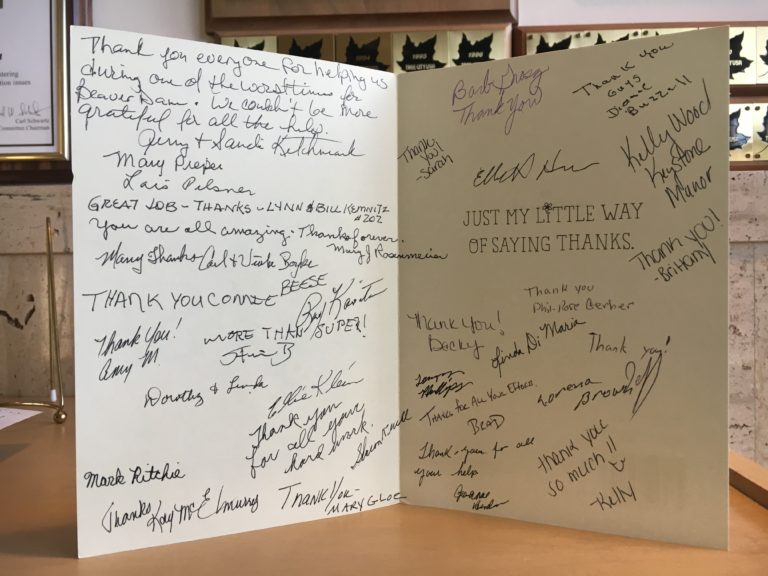 Thank you everyone for helping us
during one of the worst times for
Beaver Dam. We couldn't be more
grateful for all the help.
Jerry & Sandi Ketchmark
Mary Preper
Lois Pilsner
GREAT JOB - THANKS - LYNN & BILL KEMNITZ
#202
You are all amazing. Thanks forever.
Mary J Rosenmeier
Many Thanks Carl &
THANK YOU CONNIE BEESE
Ray
Thank You!
Amy M.
MORE THAN SUPER!
Dorothy & Linda
Ellie Klein
Thank you
for all your
hard work.
Sharon
Mark Ritchie
Thanks Kay McElmurry
THANK YOU-
MARY GLOC
Barb Gregg
Thank You
Thank you
Guys
Diane
Buzzell
Thank
you!
-Sarah
Kelly Wood
Keystone
Manor
JUST MY LITTLE WAY
OF SAYING THANKS.
THANK YOU!
-Brittany
Thank you
Phil-Rose Gerber
Thank You!
Becky
Linda Di Maria
Thank you!
Lorena
Brown
Tammy
Phillips
THANKS FOR ALL YOUR EFFORTS.
BRAD
Thank-you for all
your help
thank you
so much!!
-Kelly
Carl Schwartz
Committee Chairman